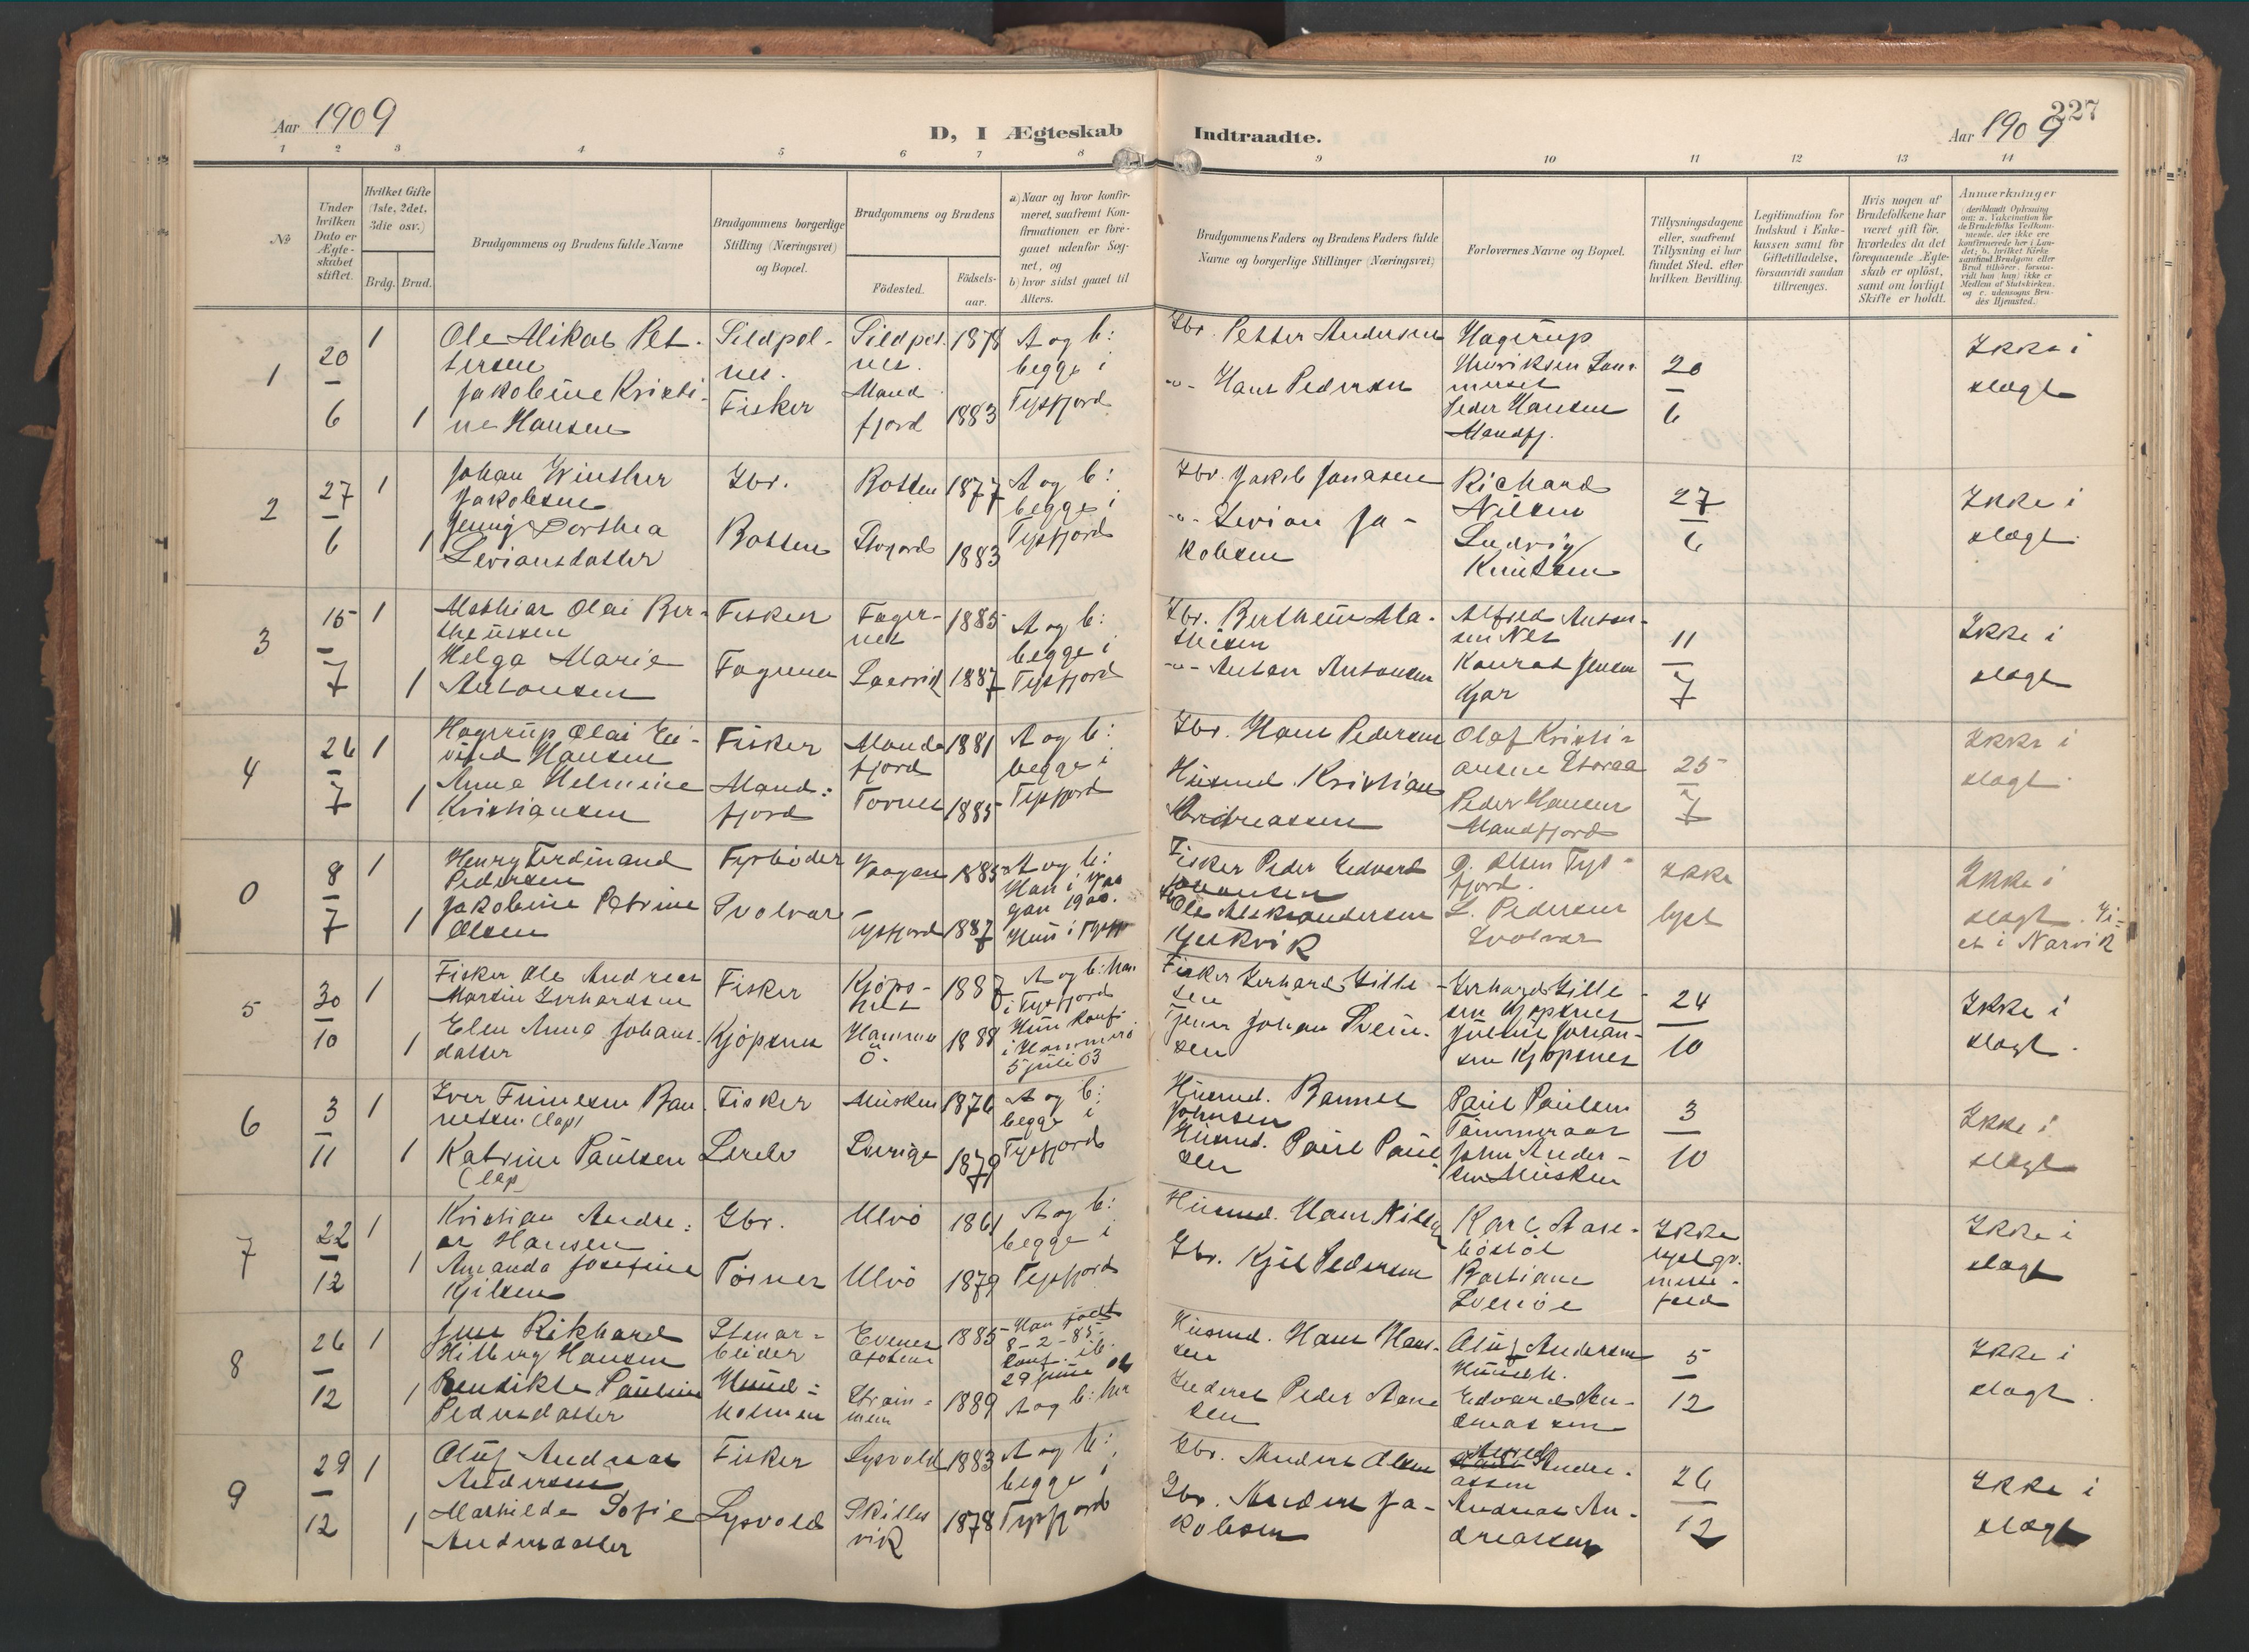 Aar 1909
D, I Ægteskab
Indtraadte.
Aar 1909
227
1 2 3 4 5 6 7 8 9 10 11 12 13 14
№
Under hvilken Dato er Ægteskabet stiftet.
Hvilket Gifte (1ste, 2det, 3die osv.)
Brdg. Brud.
Brudgommens og Brudens fulde Navne
Brudgommens borgerlige Stilling (Næringsvei) og Bopæl.
Brudgommens og Brudens
Födested.
Födsels-aar.
a) Naar og hvor konfirmeret, saafremt Konfirmationen er foregaaet udenfor Sognet, og
b) hvor sidst gaaet til Alters.
Brudgommens Faders og Brudens Faders fulde Navne og borgerlige Stillinger (Næringsvei)
Forlovernes Navne og Bopæl.
Tillysningsdagene eller, saafremt Tillysning ei har fundet Sted, efter hvilken Bevilling.
Legitimation for Indskud i Enkekassen samt for Giftetilladelse, forsaavidt saadan tiltrænges.
Hvis nogen af Brudefolkene har været gift för, hvorledes da det foregaaende Ægteskab er oplöst, samt om lovligt Skifte er holdt.
Anmærkninger
1
20
6
1
1
Ole Mikal Pet-
tersen
Jakobine Kristi-
ne Hansen
Sildpol-
nes.
Fisker
Sildpol
nes.
Mand
fjord
1878
1883
A og b:
begge i
Tysfjord
Gbr. Petter Andersen
-"- Hans Pedersen
Hagerup
Henriksen
Peder Hansen
Mandfj.
20
6
Ikke i
slægt
2
27
6
1
1
Johan Winther
Jakobsen
Jenny Dorthea
Leviansdatter
Gbr.
Botten
Botten
1877
1883
A og b:
begge i
Tysfjord
Gbr. Jakob Jonassen
-"- Levian Ja-
kobsen
Richard
Nilsen
Ludvig
Knutsen
27
6
Ikke i
slægt
3
15
7
1
1
Mathias Olai Ber-
theussen
Helga Marie
Antonsen
Fisker
Fagernes
Fager-
nes
1885
1887
A og b:
begge i
Tysfjord
Gbr. Bertheus Ma-
thisen
-"- Anton Antonsen
Alfred Anton-
sen Nes
Konrat Jensen
Kjær
11
7
Ikke i
slægt
4
26
7
1
1
Hagerup Olai Ei-
vind Hansen
Anna Helmine
Kristiansen
Fisker
Mand-
fjord
Mand
fjord
Tornes
1881
1885
A og b:
begge i
Tysfjord
Gbr. Hans Pedersen
Husmd. Kristian
Andreassen
Olaf Kristi-
ansen Storaa
Peder Hansen
Mandfjord
25
7
Ikke i
slægt
0
8
7
1
1
Henry Ferdinand
Pedersen
Jakobine Petrine
Olsen
Fyrböder
Svolvær
Vaagan
Tysfjord
1885
1887
A og b:
Han i Vaa
gan 1900.
Hun i Tysfj
Fisker Peder Edvard
Johansen
Ole Aleksandersen
Kjelkvik
O. Olsen Tys-
fjord.
L. Pedersen
Svolvær
Ikke
lyst
Ikke i
slægt. Vi-
et i Narvik
5
30
10
1
1
Fisker Ole Andreas
Martin Gerhardsen
Elen Anna Johans-
datter
Fisker
Kjöpsnes
Kjöps-
nes
Hammer
ö.
1887
1888
A og b: han
i Tysfjord
Hun konf.
i Hammerö
5 juli 03
Fisker Gerhard Gitle-
sen
Tjener Johan Svein-
sen
Gerhard Gitle-
sen Kjöpsnes
Johan-
sen Kjöpsnes
24
10
Ikke i
slægt.
6
3
11
1
1
Iver Finnesen Ban-
nesen. (lap)
Katrine Paulsen
(lap)
Fisker
Musken
Sverige
1876
1879
A og b:
begge i
Tysfjord
Husmd. Bannes
Johnsen
Husmd. Paul Paul
sen
Paul Paulsen
Tömmeraas
John Ander-
sen Musken
3
10
Ikke i
slægt
7
22
12
1
1
Kristian Andre-
as Hansen
Amanda Josefine
Kjilsen
Gbr.
Törnes
Ulvö
Ulvö
1861
1879
A og b:
begge i
Tysfjord
Husmd. Hans Nilsen
Gbr. Kjil Pedersen
Karl
Bastian
Ikke
lyst
Ikke i
slægt
8
26
12
1
1
Jens Rikhard
Hilberg Hansen
Bendikte Pauline
Pedersdatter
Stenar-
beider
Hund-
holmen
Evenes
1885
1889
Han födt
8-2-85
konf. ib.
29 juni
A og b: her
Husmd. Hans Han-
sen
Inderst Peder Hans
sen
Oluf Andersen
Hundh.
Edvard An-
dreassen
5
12
Ikke i
slægt.
9
29
12
1
1
Oluf Andreas
Andersen
Mathilde Sofie
Andersdatter
Fisker
Lysvold
Lysvold
Skilles
vik
1883
1878
A og b:
begge i
Tysfjord
Gbr. Anders Olsen
Gbr. Anders Ja-
kobsen
Andre-
assen
Andreas An-
dreassen
26
12
Ikke i
slægt